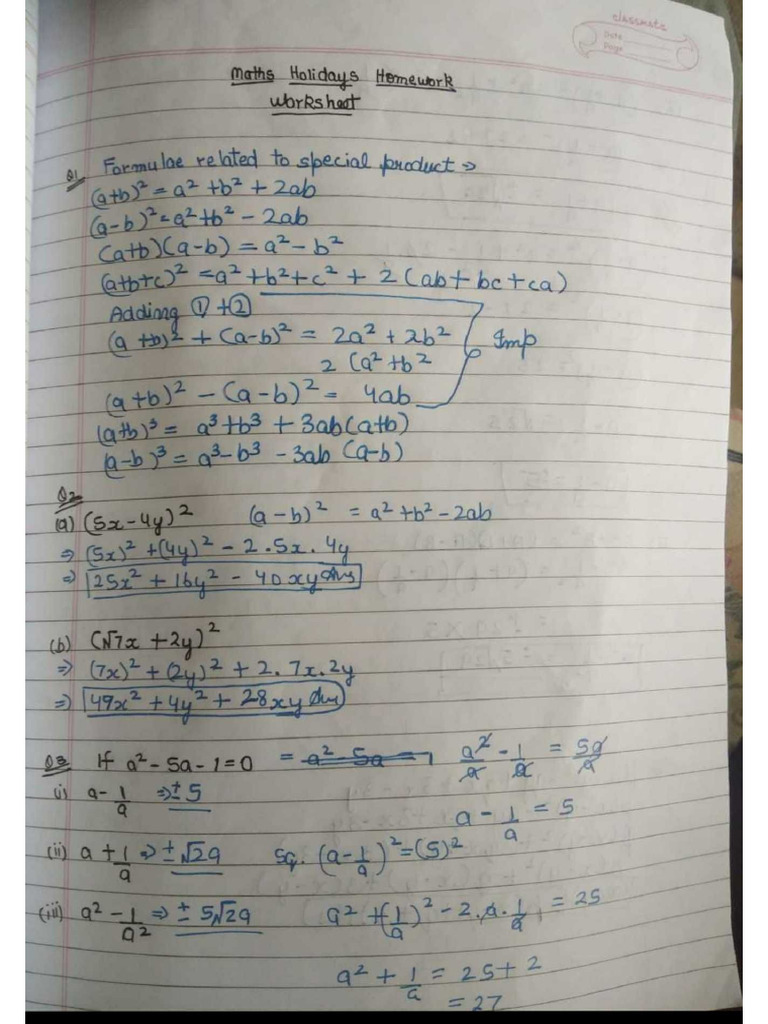 classmate
Date
Page
Maths Holidays Homework
Worksheet
Q1 Formulae related to special product ⇒
(a+b)² = a² + b² + 2ab
(a-b)² = a² + b² - 2ab
(a+b)(a-b) = a² - b²
(a+b+c)² = a² + b² + c² + 2 (ab + bc + ca)
Adding ① + ②
(a+b)² + (a-b)² = 2a² + 2b² Imp
2 (a² + b²
(a+b)² - (a-b)² = 4ab
(a+b)³ = a³ + b³ + 3ab (a+b)
(a-b)³ = a³ - b³ - 3ab (a-b)
Q2
(a) (5x - 4y)² (a-b)² = a² + b² - 2ab
⇒ (5x)² + (4y)² - 2 . 5x . 4y
⇒ 25x² + 16y² - 40xy Ans
(b) (√7x + 2y)²
⇒ (7x)² + (2y)² + 2 . 7x . 2y
⇒ 49x² + 4y² + 28xy Ans
Q3 If a² - 5a - 1 = 0 = a² - 5a = 1 a²/a - 1/a = 5a/a
(i) a - 1/a ⇒ ± 5
a - 1/a = 5
(ii) a + 1/a ⇒ ± √29 Sq. (a - 1/a)² = (5)²
(iii) a² - 1/a² ⇒ ± 5√29 a² + (1/a)² - 2 . a . 1/a = 25
a² + 1/a = 25 + 2
= 27